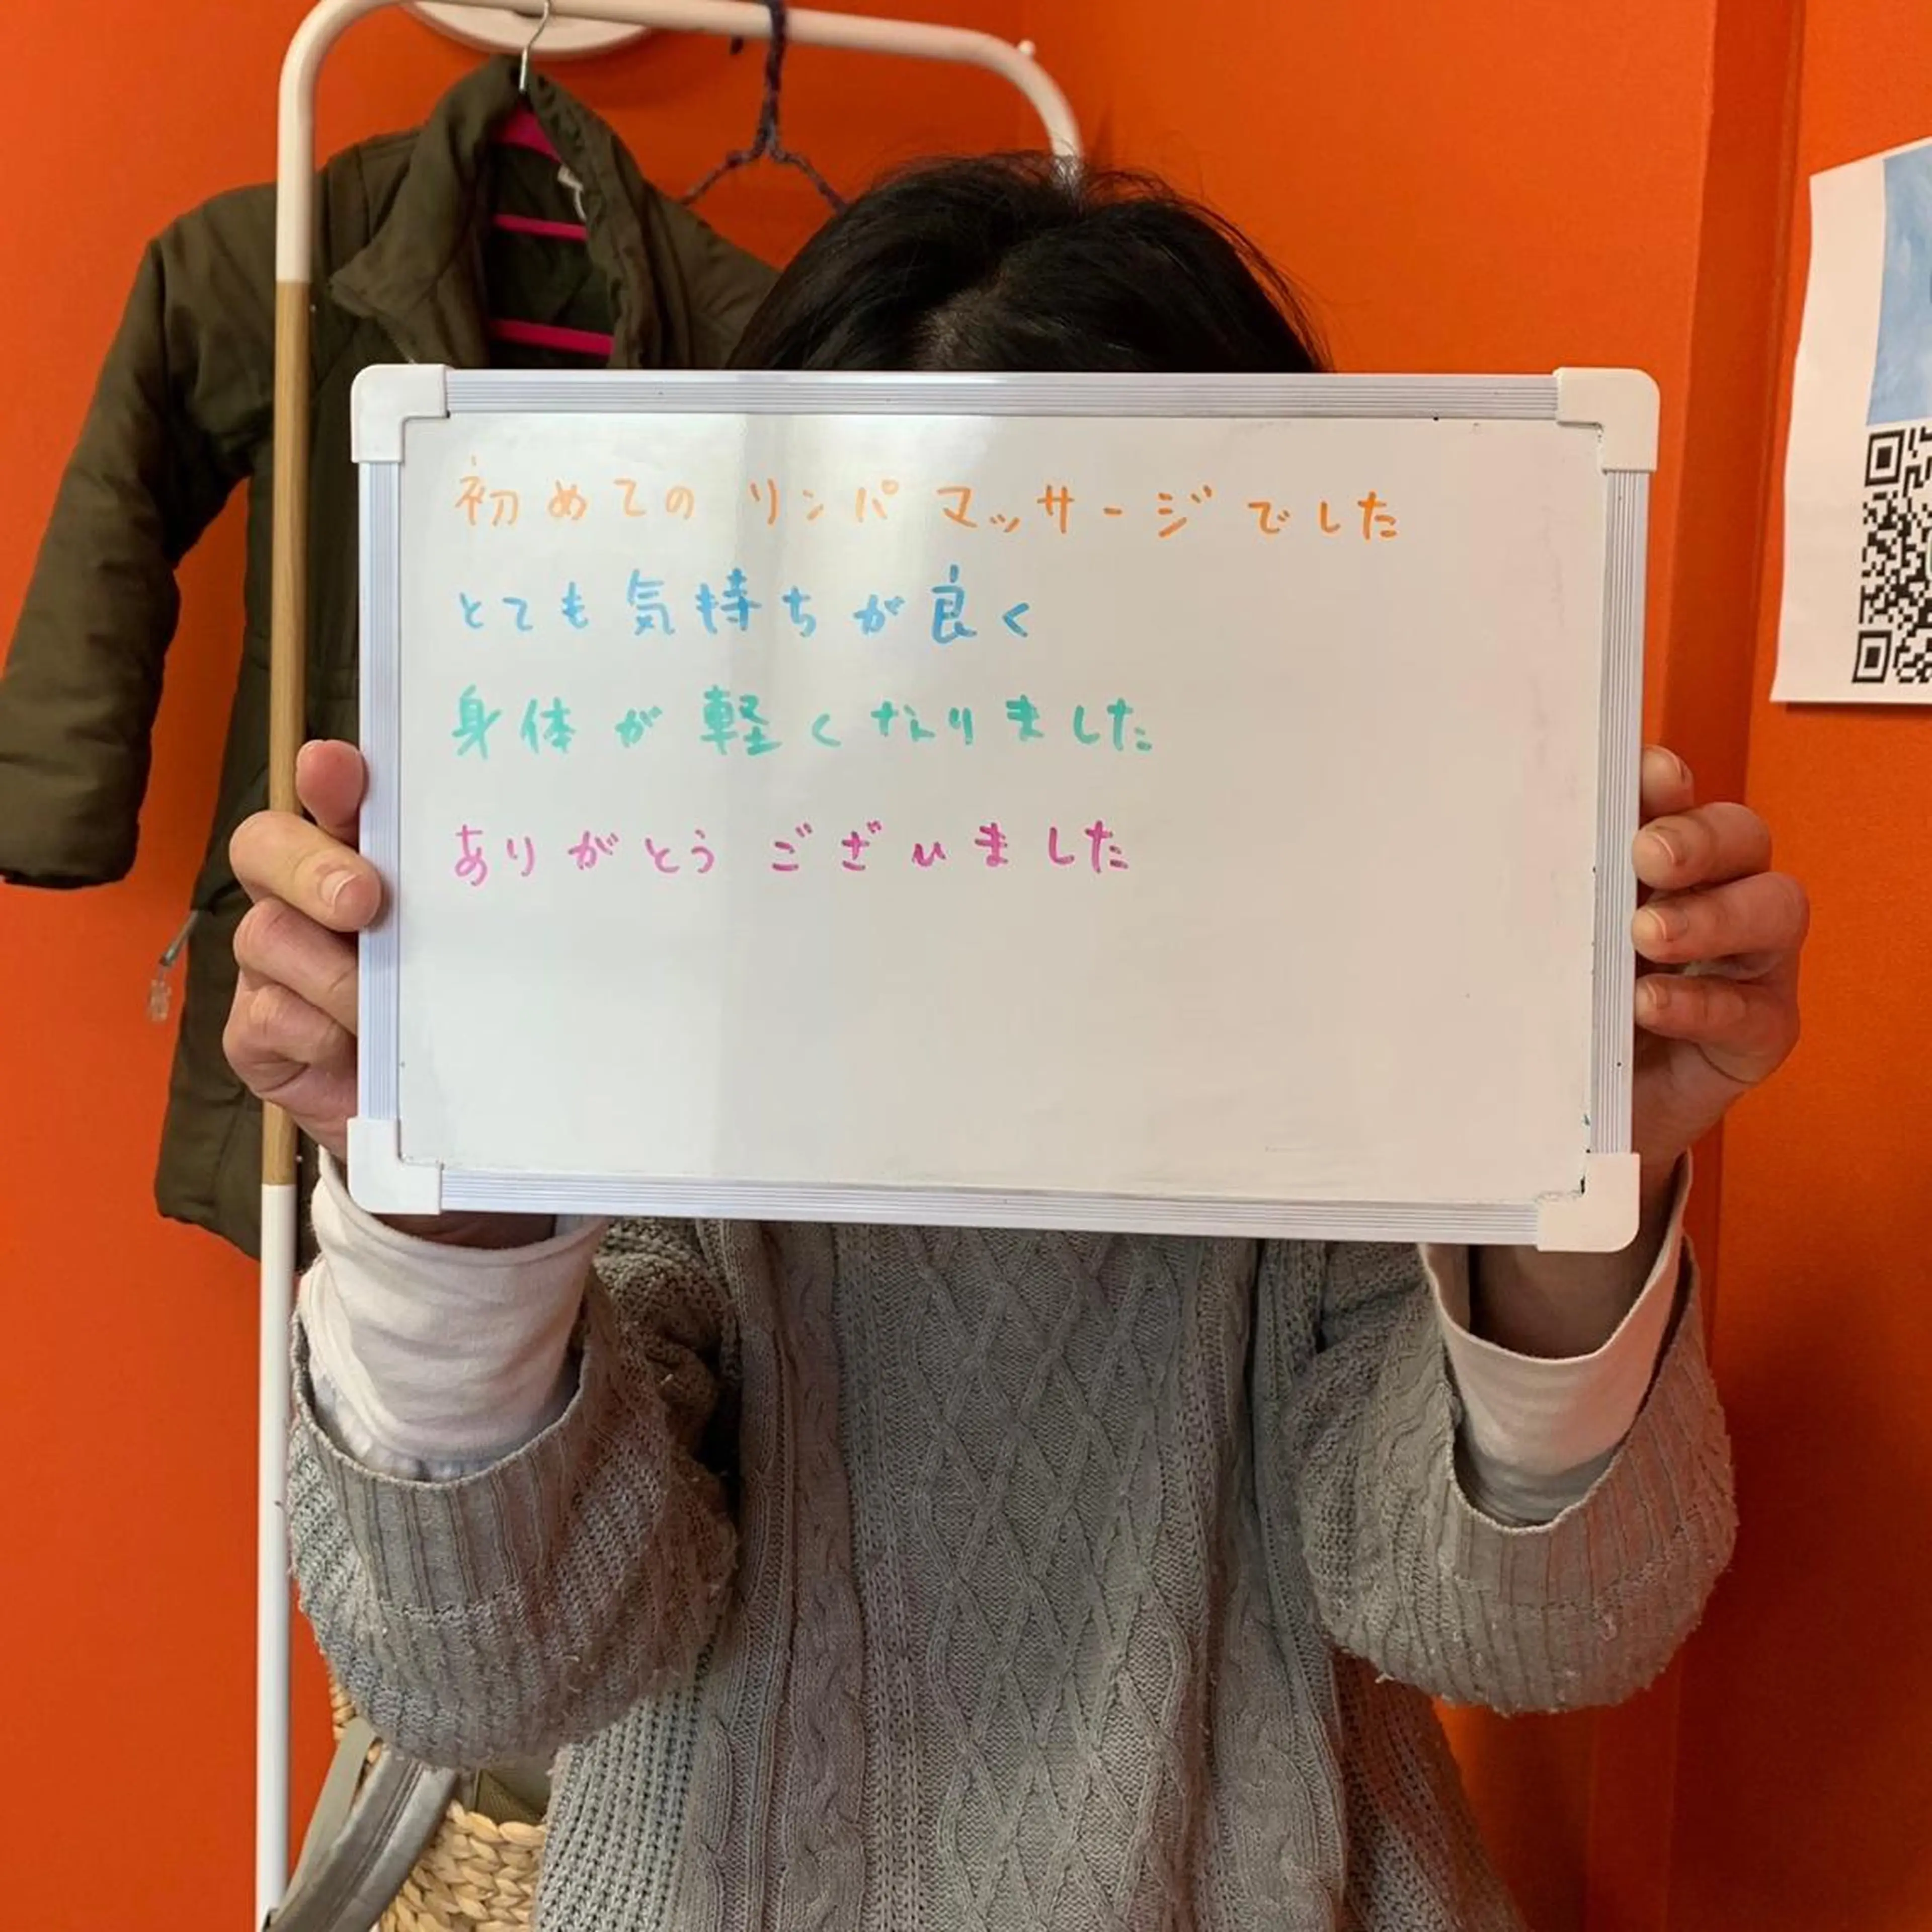 初めてのリンパマッサージでした
とても気持ちが良く
身体が軽くなりました
ありがとうございました